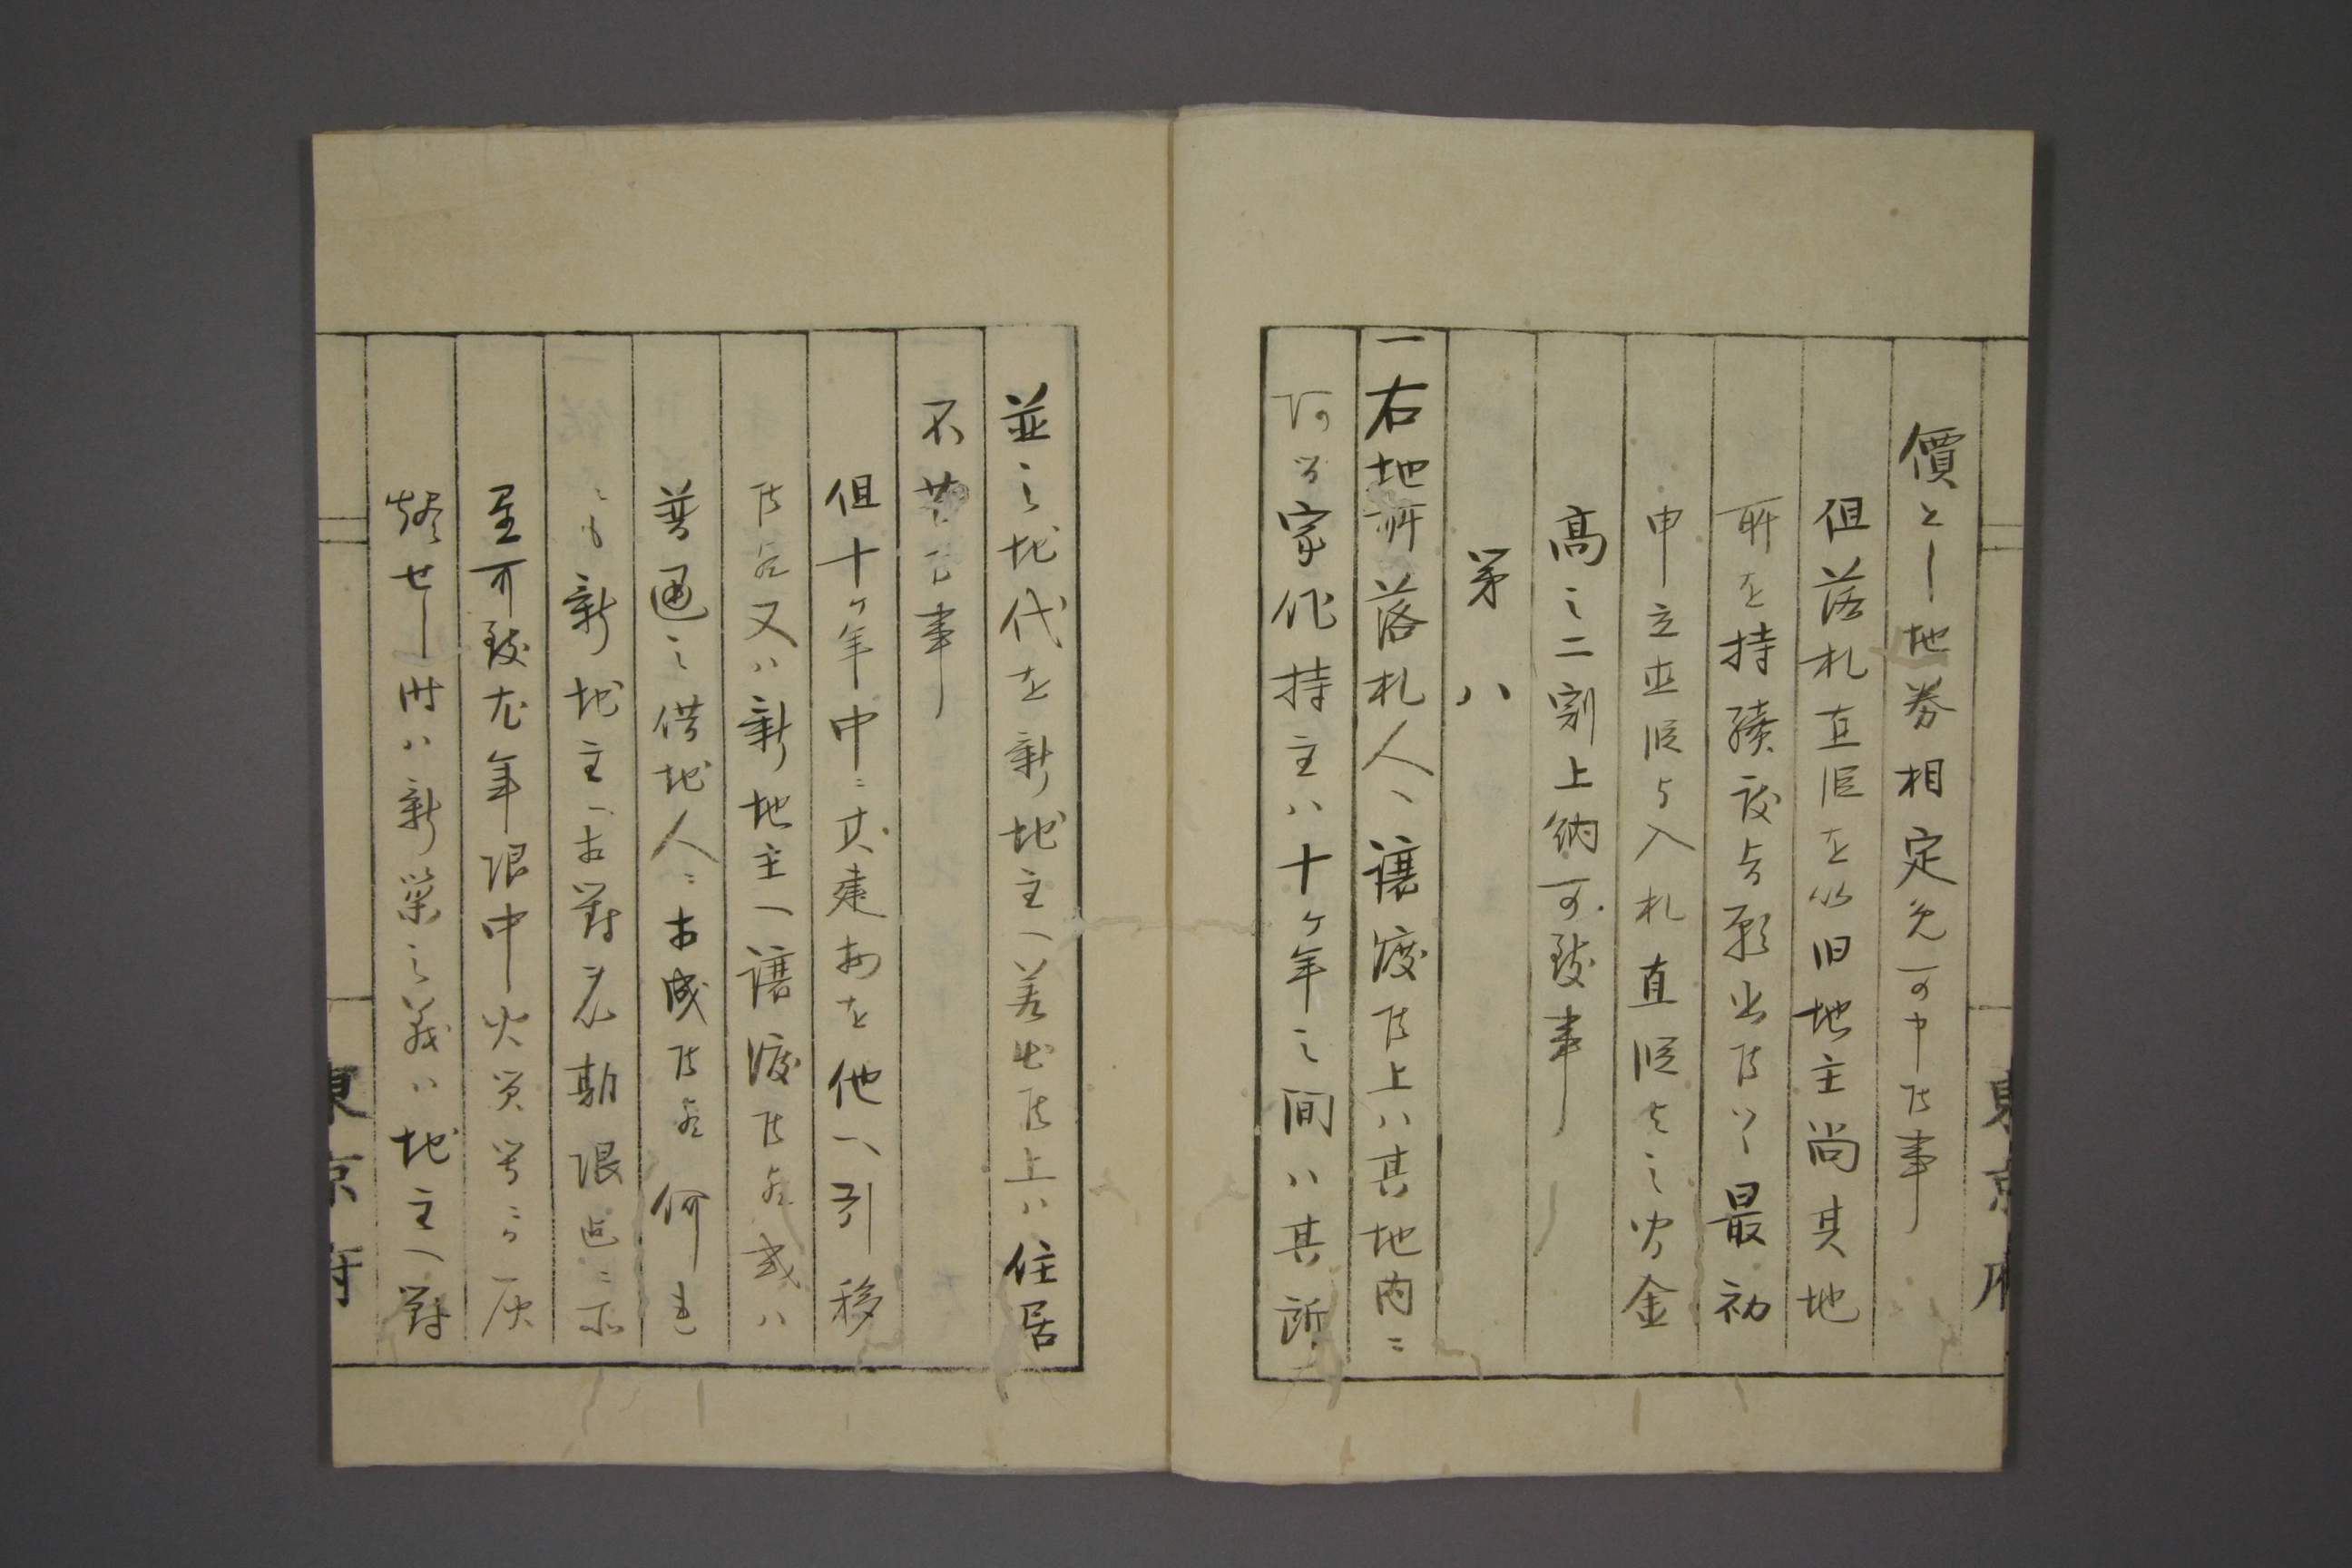 價として地券相定メ可申候事
但落札直段を以旧地主尚其地
所を持續度旨願出候ハヽ最初
申立直段与入札直段と之差金
高之二割上納可致事
第八
一右地所落札人ヘ讓渡候上ハ其地内ニ
家作持主ハ十ヶ年之間ハ其所
並之地代を新地主ヘ差出候上ハ住居
不苦候事
但十ヶ年中ニ其建物を他ヘ引移
候歟又ハ新地主ヘ讓渡候歟或ハ
普通之借地人ニ相成候歟何れ
ニも新地主ヘ相對示期限迄ニ
至可致尤年限中火災等ニ而灰
燼せし時ハ新築之義ハ地主ヘ對
東京府
東京府